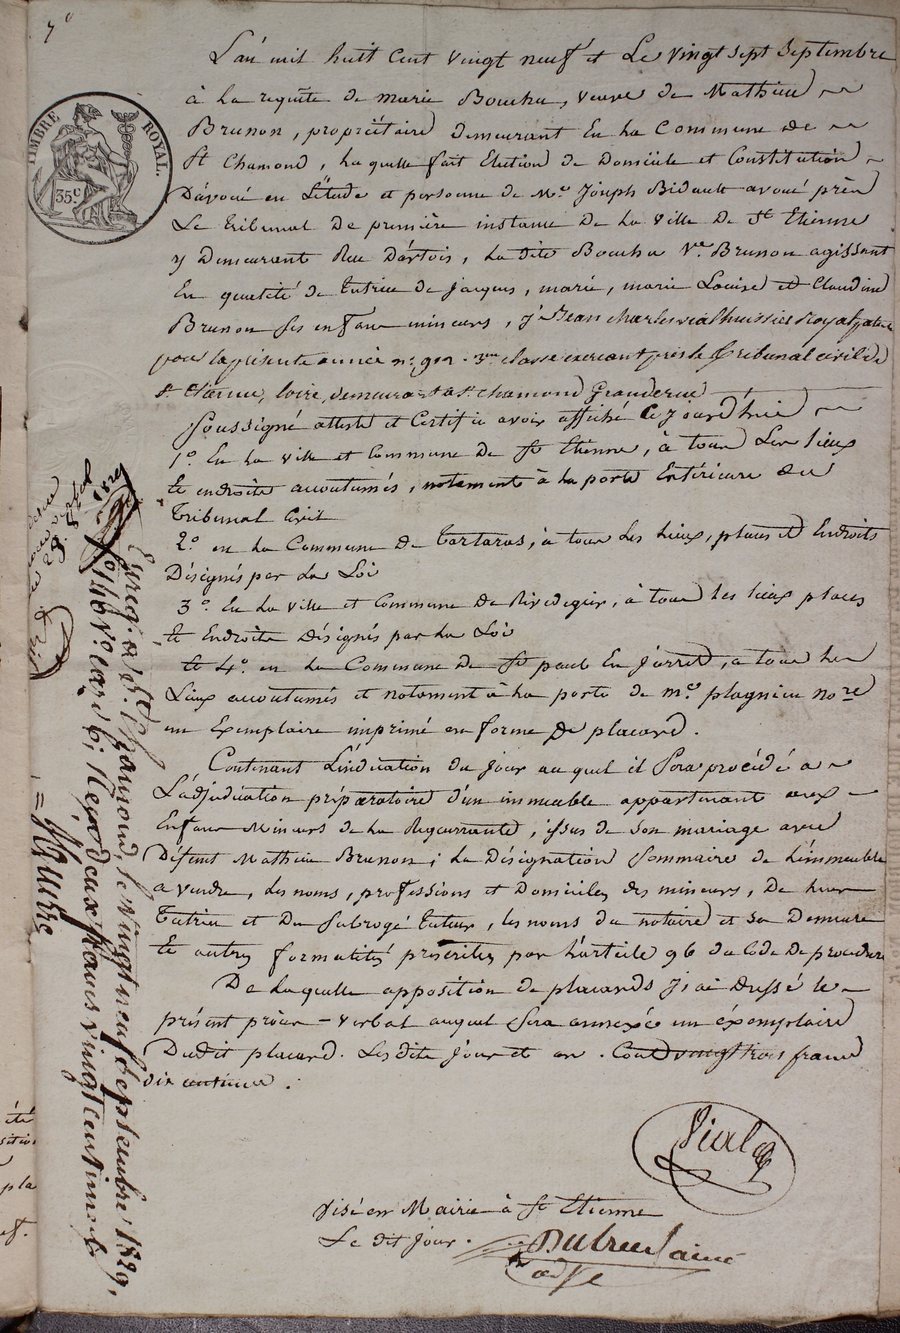 7e
TIMBRE ROYAL.
35c
L'an mil huit cent vingt neuf et Le vingt sept Septembre
à La requête de marie Bouchu, veuve de Mathieu
Brunon, propriétaire demeurant En La Commune de
St Chamond, Laquelle fait Election de Domicile et Constitution
D'avoué en L'étude et personne de Me. Joseph Bidault avoué près
Le tribunal De première instance De La ville De St Etienne
y Demeurant Rue D'artois, La dite Bouchu Ve. Brunon agissant
En qualité de tutrice de jacques, marie, marie Louise et Claudine
Brunon Ses enfans mineurs, Je Jean Charles vial huissier Royal patenté
pour la présente année no. 912. 3me. classe exerçant près le tribunal civil de
st. etienne, loire, demeurant à st. chamond Granderue
Soussigné atteste et Certifie avoir affiché Ce jourd'hui
1o. En La ville et Commune De St Etienne, à tous Les lieux
et endroits accoutumés, notament à la porte Extérieure du
Tribunal Civil
2o. en La Commune De Tartaras, à tous Les Lieux, places et Endroits
Désignés par La Loi
3o. En La ville et Commune De Rivedegier, à tous les lieux places
et Endroits Désignés par La Loi
et 4o. en La Commune De St paul En Jarret, à tous Les
Lieux accoutumés et notament à La porte de me. plagnieu nore
un Exemplaire imprimé en forme De placard.
Contenant L'indication du jour auquel il Sera procédé à
L'adjudication préparatoire d'un immeuble appartenant aux
Enfans Mineurs de La Requerrante, issus de Son mariage avec
Défunt Mathieu Brunon; La Désignation Sommaire de L'immeuble
a vendre, Les noms, professions et Domiciles des mineurs, De Leur
Tutrice et Du Subrogé tuteur, les noms du notaire et Sa Demeure
et autres formalités prescrites par L'article 96 du Code De procedure
De Laquelle apposition de placards J'ai Dressé le
présent procès-verbal auquel Sera annexée un éxemplaire
Dudit placard. Les dits jour et an. Cout vingt trois francs
dix centimes.
Vial
visé en Mairie à St Etienne
Le dit jour.
Dubreuil ainé
adj
Enreg. à St. Chamond, le vingt neuf septembre 1829,
fo. 146 vo. Reçu deux francs vingt centimes
= Maurre
1829